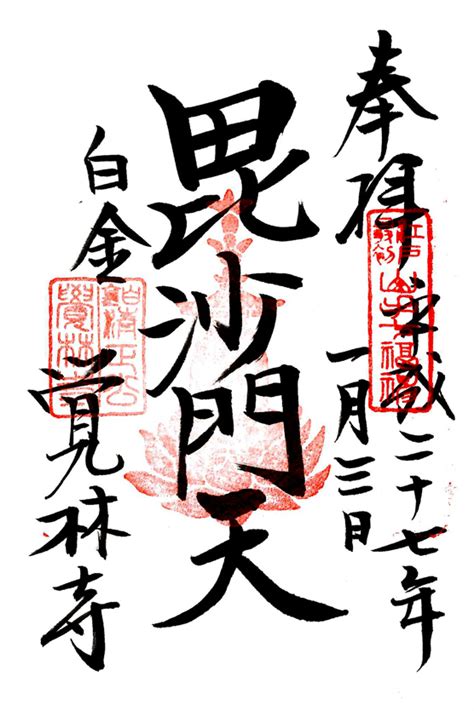 奉拝
平成二十七年
一月三日
江戸最初
山手七福神
毘沙門天
白金
覚林寺
白金清正公
覺林寺